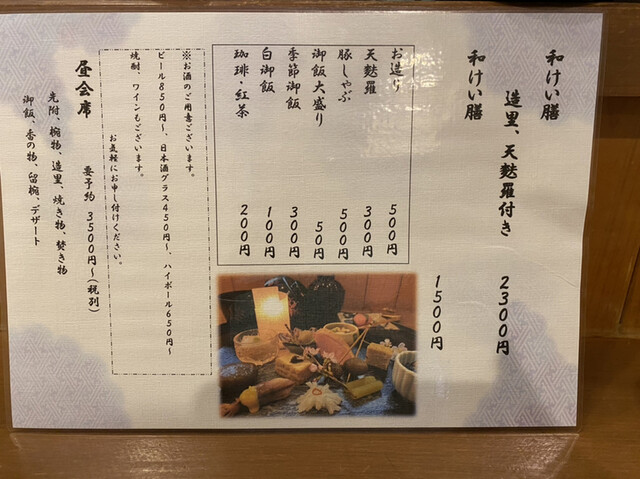 和けい膳
造里、天麩羅付き 2300円
和けい膳 1500円
お造り 500円
天麩羅 300円
豚しゃぶ 500円
御飯大盛り 50円
季節御飯 300円
白御飯 100円
珈琲・紅茶 200円
※お酒のご用意ございます。
ビール850円～、日本酒グラス450円～、ハイボール650円～
焼酎、ワインもございます。
お気軽にお申し付けください。
昼会席 要予約 3500円～(税別)
先附、椀物、造里、焼き物、焚き物
御飯、香の物、留椀、デザート